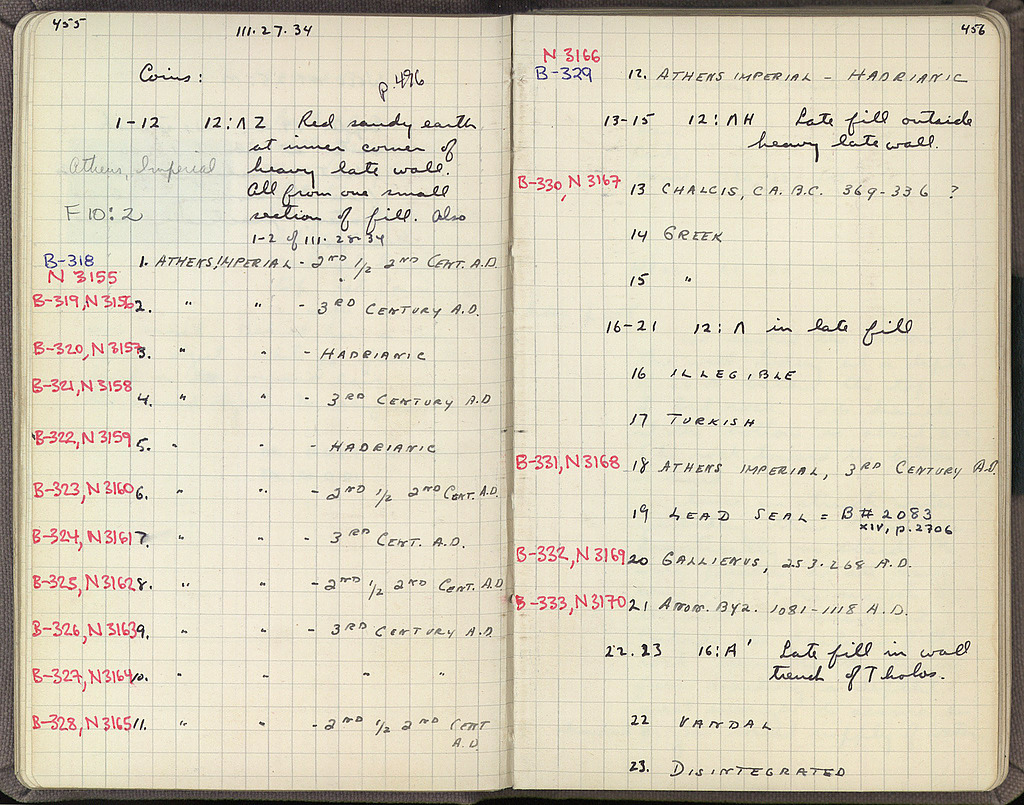 455
111.27.34
Coins:
p.496
1-12 12:Λ Z Red sandy earth
at inner corner of
Athens, Imperial heavy late wall.
All from one small
F 10:2 section of fill. Also
1-2 of 111.28.34
B-318 1. ATHENS IMPERIAL - 2ND 1/2 2ND CENT. A.D.
N 3155
B-319, N 3156 2. " " - 3RD CENTURY A.D.
B-320, N 3157 3. " " - HADRIANIC
B-321, N 3158
4. " " - 3RD CENTURY A.D
B-322, N 3159 5. " " - HADRIANIC
B-323, N 3160 6. " " - 2ND 1/2 2ND CENT. A.D.
B-324, N 3161 7. " " - 3RD CENT. A.D.
B-325, N 3162 8. " " - 2ND 1/2 2ND CENT. A.D.
B-326, N 3163 9. " " - 3RD CENTURY A.D.
B-327, N 3164 10. " " " "
B-328, N 3165 11. " " - 2ND 1/2 2ND CENT
A.D.
456
N 3166
B-329 12. ATHENS IMPERIAL - HADRIANIC
13-15 12:ΛH Late fill outside
heavy late wall.
B-330, N 3167 13 CHALCIS, CA. B.C. 369-336 ?
14 GREEK
15 "
16-21 12:Λ in late fill
16 ILLEGIBLE
17 TURKISH
B-331, N 3168 18 ATHENS IMPERIAL, 3RD CENTURY A.D.
19 LEAD SEAL = B# 2083
XIV, p.2706
B-332, N 3169 20 GALLIENUS, 253-268 A.D.
B-333, N 3170 21 ANON. BYZ. 1081-1118 A.D.
22.23 16:A' Late fill in wall
trench of Tholos.
22 VANDAL
23. DISINTEGRATED